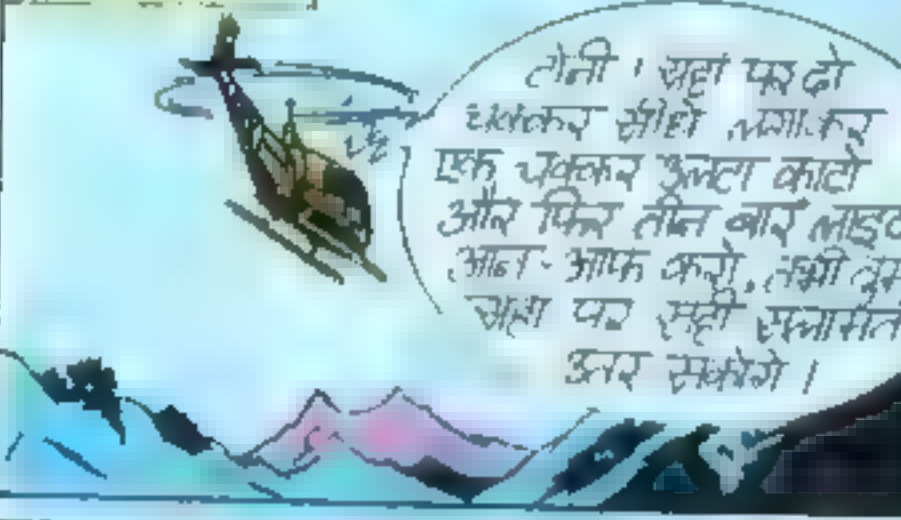 टोनी । यहां पर दो
चक्कर सीधे लगाकर
एक चक्कर उल्टा काटो
और फिर तीन बार लाइट
आन - आफ करो, तभी तुम
यहां पर सही सलामत
उतर सकोगे ।